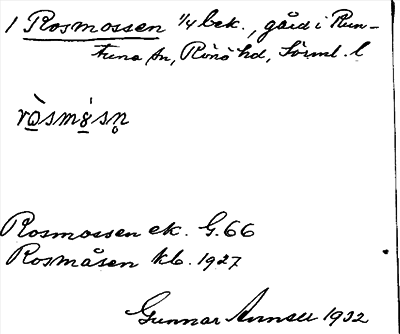 1 Rosmossen 1/4 bek., gård i Run-
tuna sn, Rönö hd, Sörml. l
Rosmossen ek. G. 66
Rosmåsen kb. 1927
Gunnar 1932